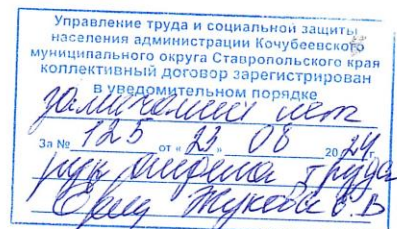 Управление труда и социальной защиты
населения администрации Кочубеевского
муниципального округа Ставропольского края
коллективный договор зарегистрирован
в уведомительном порядке
замечаний нет
За № 125 от « 23 » 08 20 24
рук отдела труда
Жукова Е.В